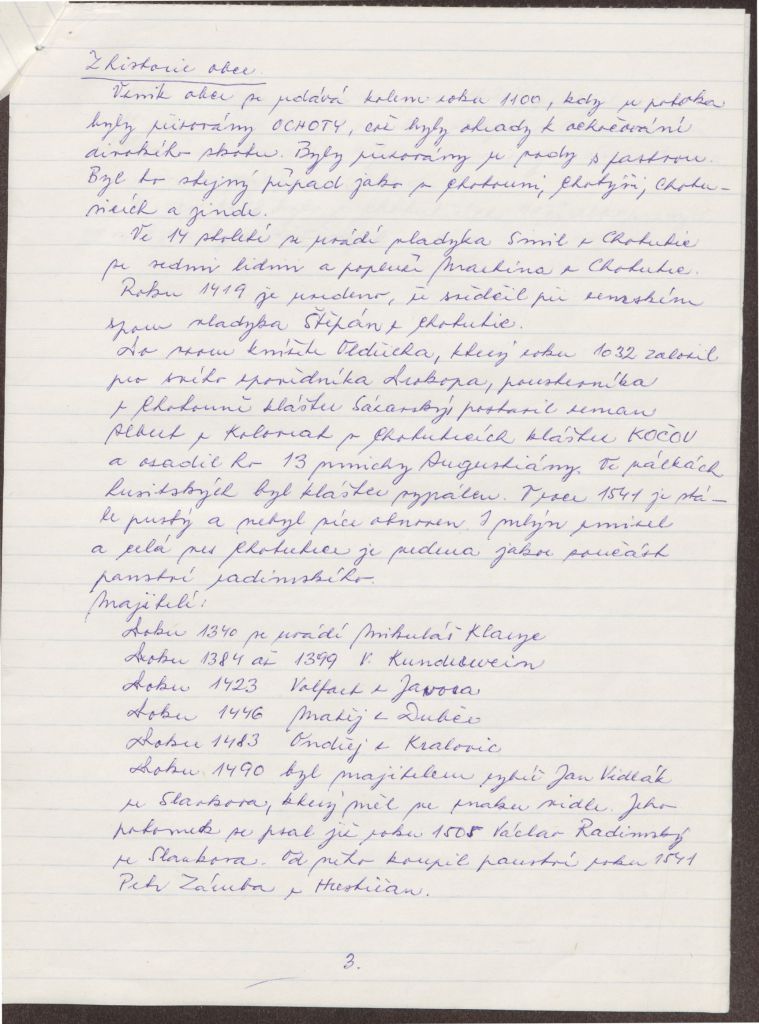 Z historie obce.
Vznik obce se udává kolem roku 1100, kdy u potoka
byly budovány OCHOTY, což byly ohrady k ochočování
divokého skotu. Byly budovány u vody s pastvou.
Byl to stejný případ jako v Chotouni, Chotýši, Chotu-
sicích a jinde.
Ve 14 století se uvádí vladyka Smil z Chotutic
se sedmi lidmi a popluží Martina z Chotutic.
Roku 1419 je uvedeno, že svědčil při zemském
sporu vladyka Štěpán z Chotutic.
Po vzoru knížete Oldřicha, který roku 1032 založil
pro svého zpovědníka Prokopa, poustevníka
z Chotouně klášter Sázavský, postavil zeman
Albert z Kolovrat v Chotuticích klášter KOČOV
a osadil ho 13 mnichy Augustiány. Ve válkách
husitských byl klášter vypálen. V roce 1541 je stá-
le pustý a nebyl více obnoven. I mlýn zmizel
a celá ves Chotutice je vedena jako součást
panství radimského.
Majitelé:
Roku 1340 se uvádí Mikuláš
Roku 1384 až 1399 V.
Roku 1423 Volfart z Javora
Roku 1446 Matěj z Dubče
Roku 1483 Ondřej z Kralovic
Roku 1490 byl majitelem rytíř Jan Vidlák
ze Slavkova, který měl ve znaku vidle. Jeho
potomek se psal již roku 1505 Václav Radimský
ze Slavkova. Od něho koupil panství roku 1541
Petr Záruba z Hustířan.
3.